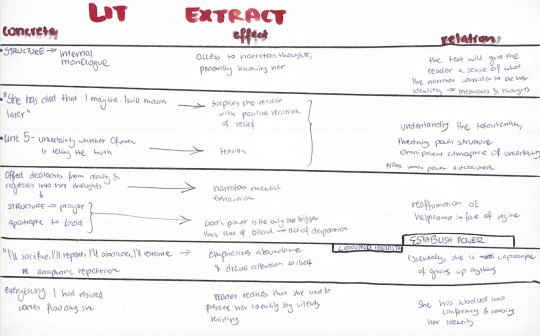 LIT EXTRACT
concrete effect relation
STRUCTURE → internal monologue
access to narrators thoughts,
personally knowing her
the text will give the
reader a sense of what
the narrator considers to be her
identity → memories & thoughts
"She has died that I may live. I will mourn
later"
surprises the reader
with positive reaction
of relief
Line 5- uncertainty whether Ofwarren
is telling the truth
tension
Understanding the
threatening power structure
omnipresent atmosphere of uncertainty
from power
detaches from reality &
regresses into her thoughts
narrators mental
STRUCTURE → prayer
apostrophe to God
God's power is the only one bigger
than that of Gilead → act of desperation
reaffirmation of
helplessness in face of regime
LOOSING IDENTITY
ESTABLISH POWER
"I'll sacrifice, I'll repent, I'll abdicate, I'll renounce" →
anaphoric repetition
emphasises abundance
& draws attention to itself
Essentially, she is capable
of giving up anything
everything I had resisted
comes flooding in
reader realizes that she used to
preserve her identity by silently
resisting
She has been into
conforming & losing
her identity